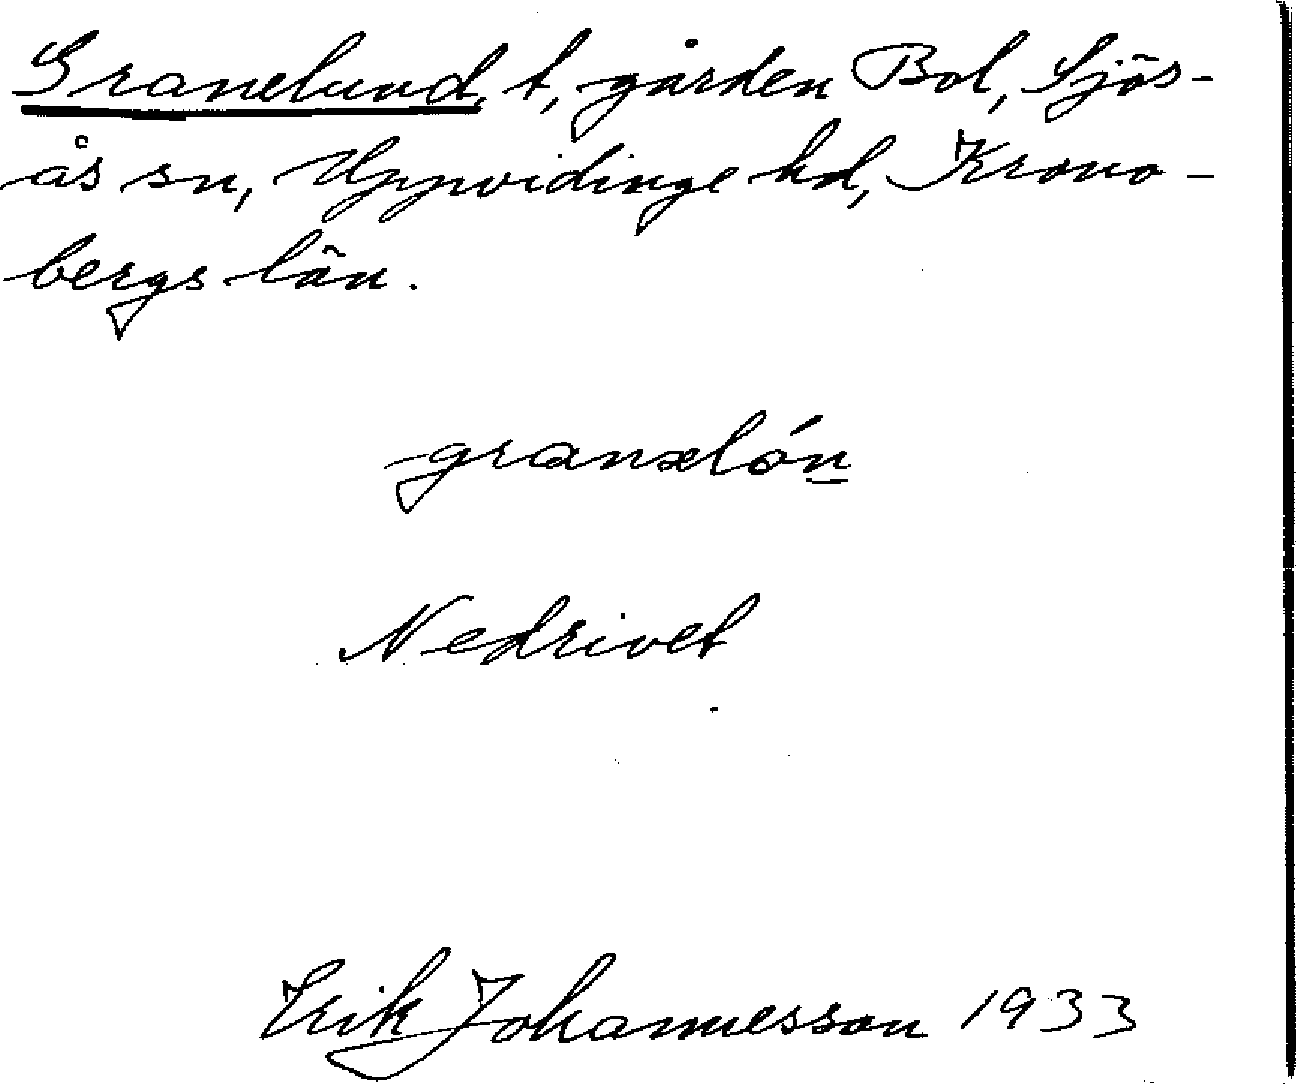 Granelund, t, gården Bol, Sjös-
ås sn, Uppvidinge hd, Krono-
bergs län.
granəlón̲
Nedrivet
Erik Johannesson 1933